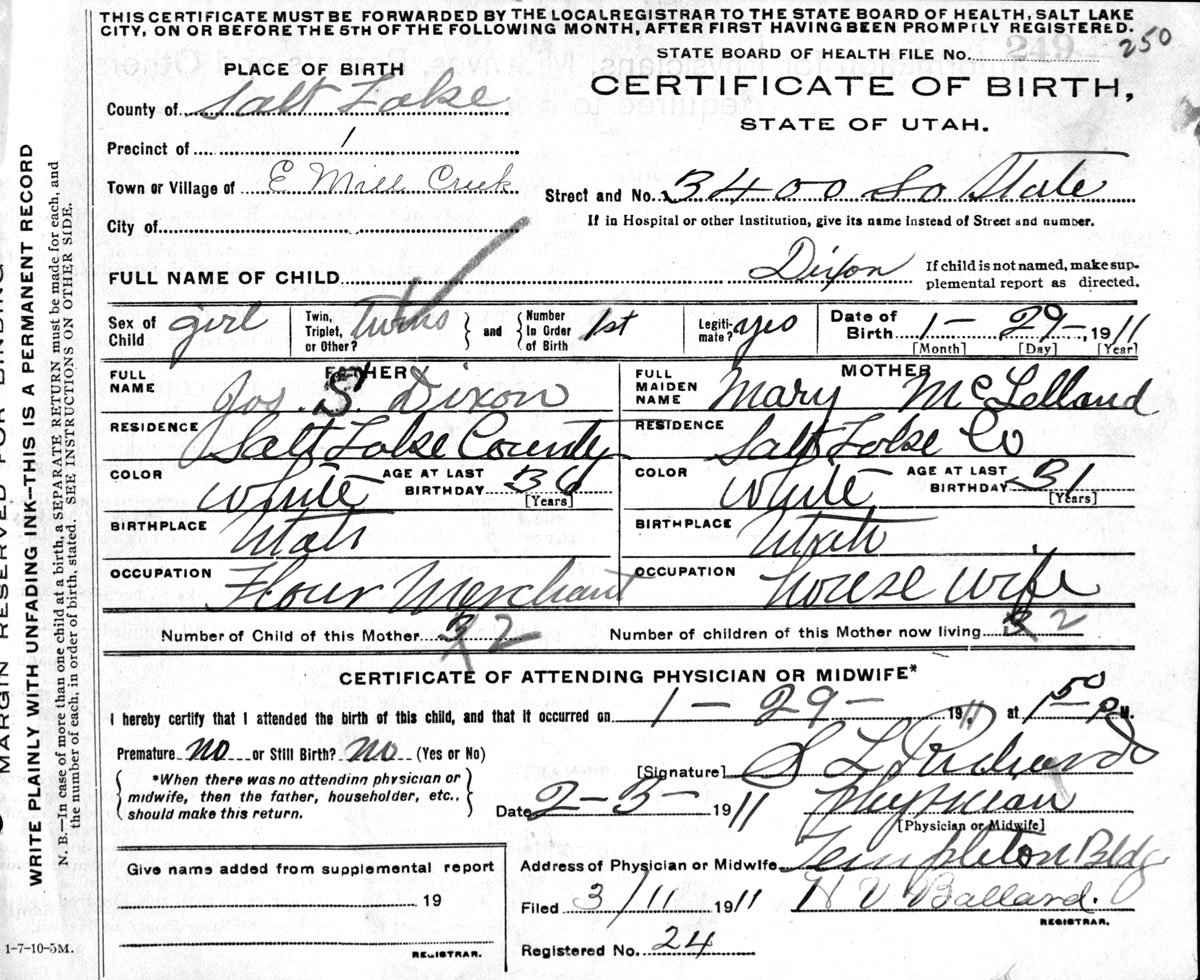 THIS CERTIFICATE MUST BE FORWARDED BY THE LOCAL REGISTRAR TO THE STATE BOARD OF HEALTH, SALT LAKE
CITY, ON OR BEFORE THE 5TH OF THE FOLLOWING MONTH, AFTER FIRST HAVING BEEN PROMPTLY REGISTERED.
STATE BOARD OF HEALTH FILE No. 249 250
PLACE OF BIRTH
CERTIFICATE OF BIRTH,
STATE OF UTAH.
County of Salt Lake
Precinct of 1
Town or Village of E Mill Creek
Street and No. 3400 So State
City of
If in Hospital or other Institution, give its name instead of Street and number.
FULL NAME OF CHILD Dixon
If child is not named, make sup-
plemental report as directed.
Sex of Child girl
Twin, Triplet, or Other? twins
and
Number In Order of Birth 1st
Legiti-mate? yes
Date of Birth 1 - 29 -, 1911
[Month] [Day] [Year]
FATHER
FULL NAME Jos. S. Dixon
RESIDENCE Salt Lake County
COLOR White
AGE AT LAST BIRTHDAY 36 [Years]
BIRTHPLACE Utah
OCCUPATION Flour Merchant
MOTHER
FULL MAIDEN NAME Mary McLelland
RESIDENCE Salt Lake Co
COLOR White
AGE AT LAST BIRTHDAY 31 [Years]
BIRTHPLACE Utah
OCCUPATION house wife
Number of Child of this Mother 3 2
Number of children of this Mother now living 3 2
CERTIFICATE OF ATTENDING PHYSICIAN OR MIDWIFE*
I hereby certify that I attended the birth of this child, and that it occurred on 1 - 29 - 1911, at 1 50 P M.
Premature no or Still Birth? no (Yes or No)
*When there was no attending physician or
midwife, then the father, householder, etc.,
should make this return.
[Signature] S L Richards
Date 2-3- 1911 Physician
[Physician or Midwife]
Give name added from supplemental report
19
REGISTRAR.
Address of Physician or Midwife Templeton Bldg
Filed 3/11 1911 H V Ballard.
REGISTRAR.
Registered No. 24
1-7-10-5M.
MARGIN RESERVED FOR BINDING
WRITE PLAINLY WITH UNFADING INK—THIS IS A PERMANENT RECORD
N. B.—In case of more than one child at a birth, a SEPARATE RETURN must be made for each, and
the number of each, in order of birth, stated. SEE INSTRUCTIONS ON OTHER SIDE.